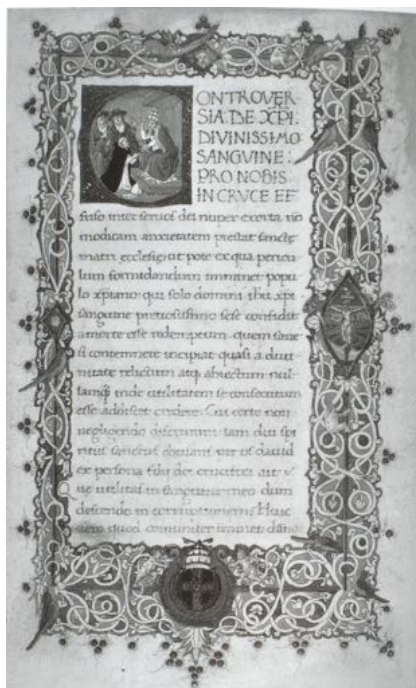 CONTROVER
SIA: DE XPI:
DIVINISSIMO
SANGVINE:
PRO NOBIS
IN CRVCE EF
fuso inter seruos dei nuper exorta, nō
modicam anxietatem prestat sancte
matri ecclesie: ut pote ex qua pericu
lum formidandum imminet popu
lo xp̄iano: qui solo domini ihū xp̄i
sanguine pretiosissimo sese confidit
a morte esse redemptum. quem sane
si contemnere incipiat quasi a diui
nitate relictum atq; abiectum nul
lamq; inde utilitatem se consecutum
esse credere. Cui certe non
negligendo iam diu spi
ritus sanctus per os dauid
ex persona filii dei crucifixi ait
utilitas in sanguine meo dum
descendo in corruptionem? Huic
quod imminet